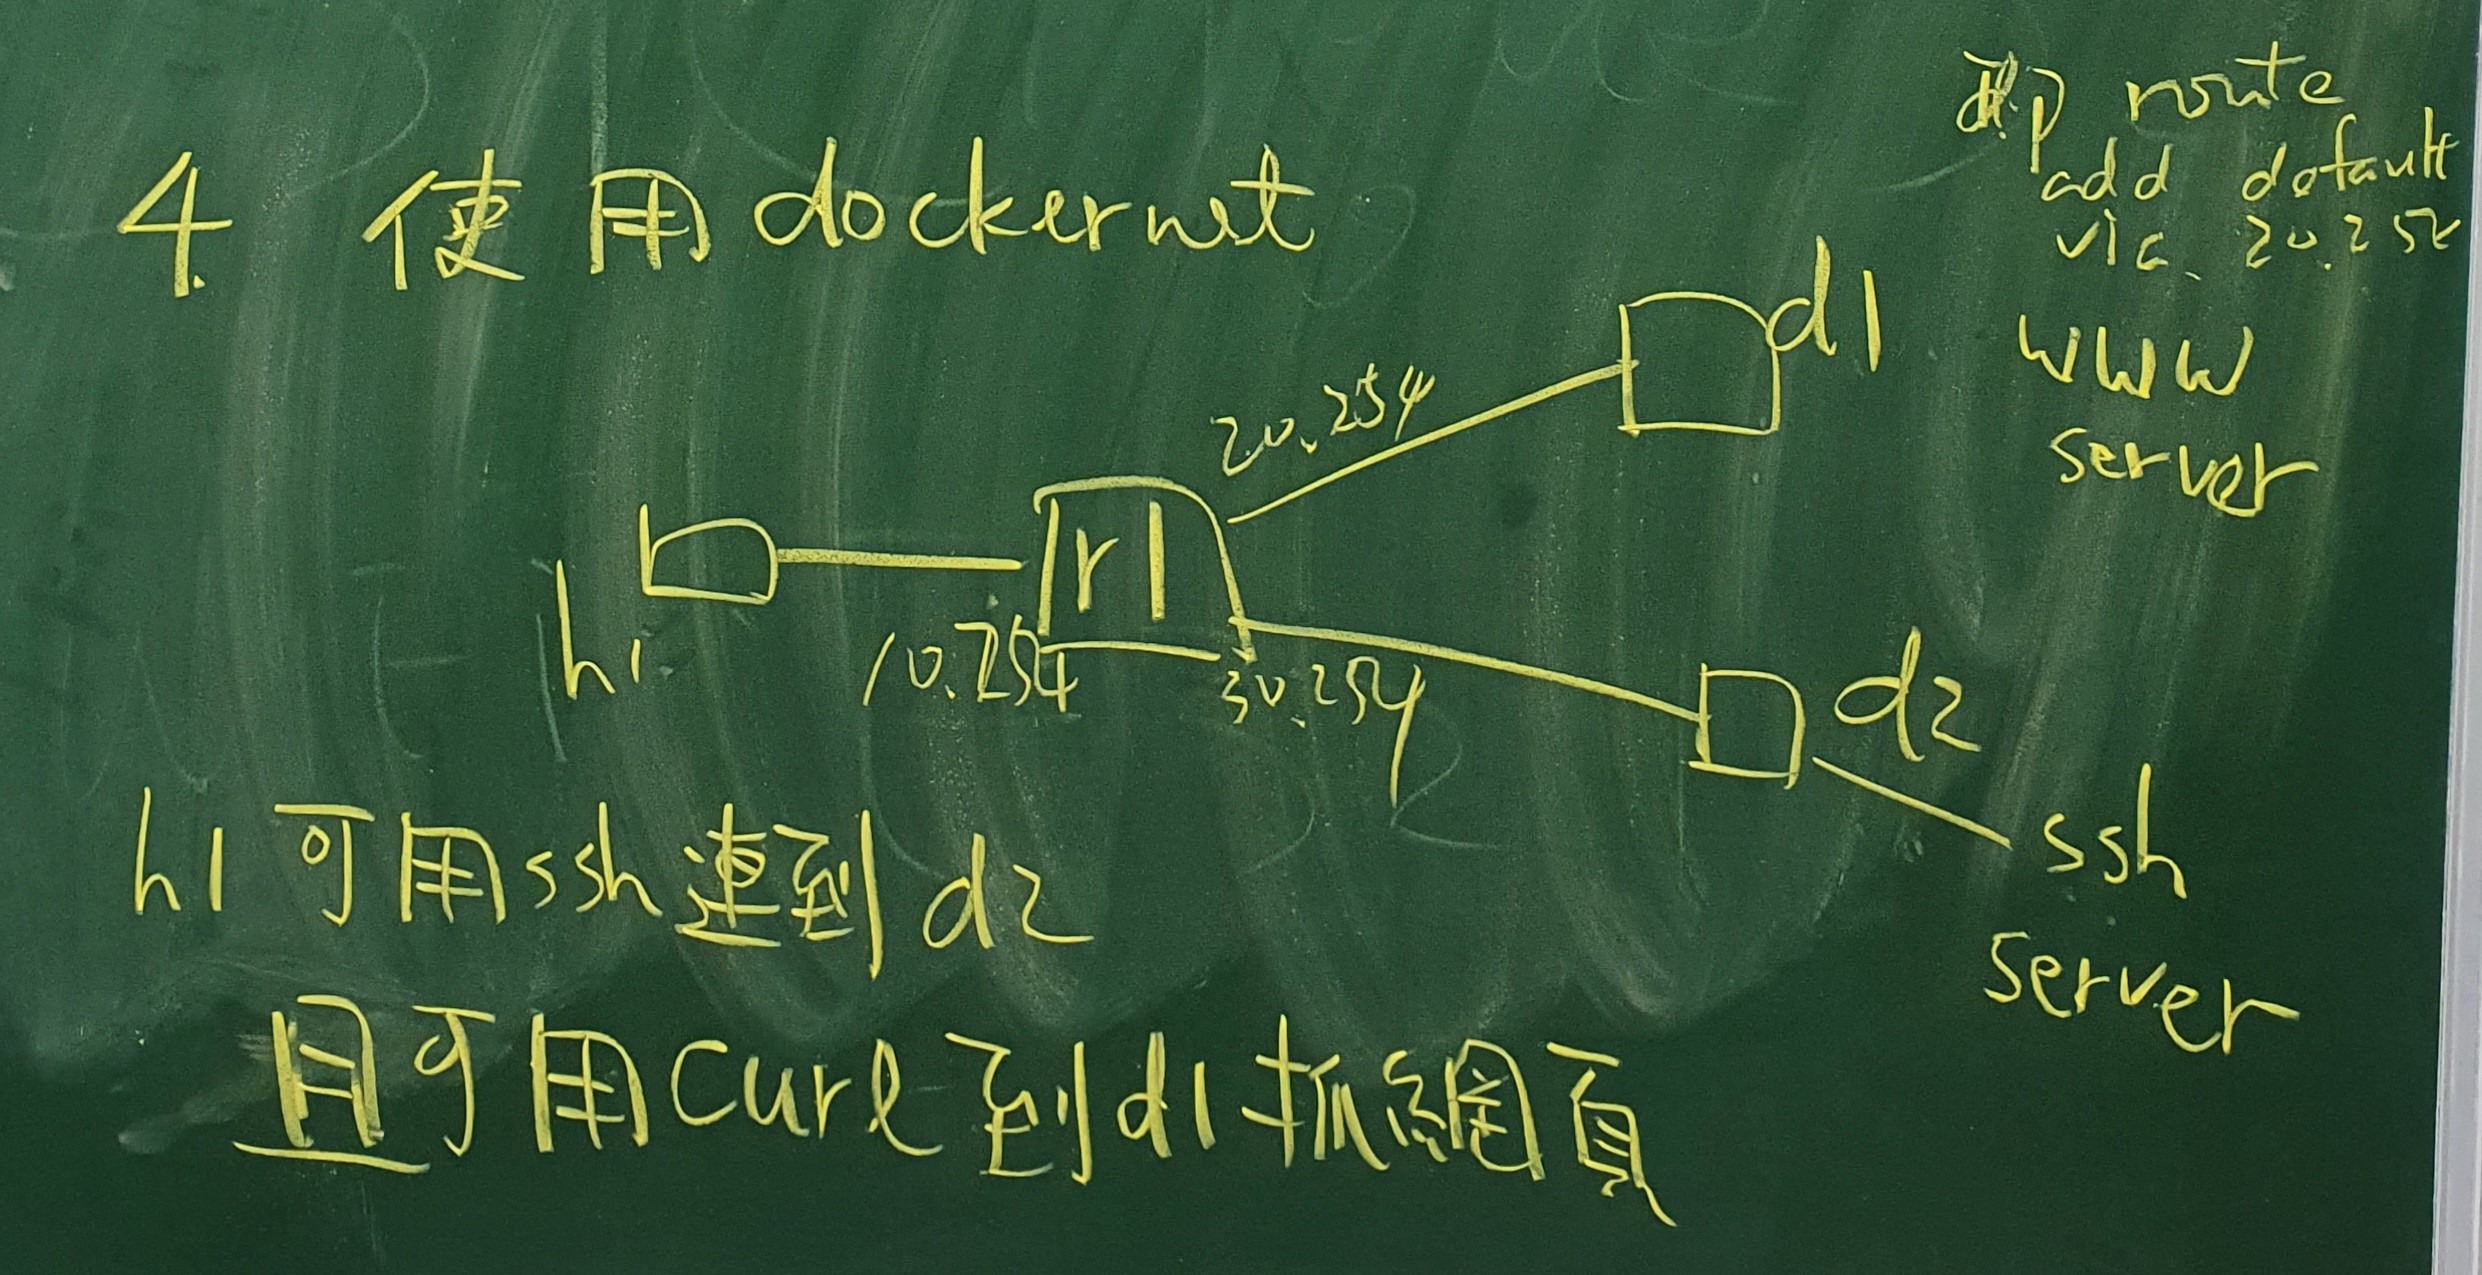 4. 使用dockernet
ip route
add default
via 20.254
d1
www
server
20.254
r1
h1
10.254
30.254
d2
ssh
server
h1可用ssh連到d2
且可用curl到d1抓網頁